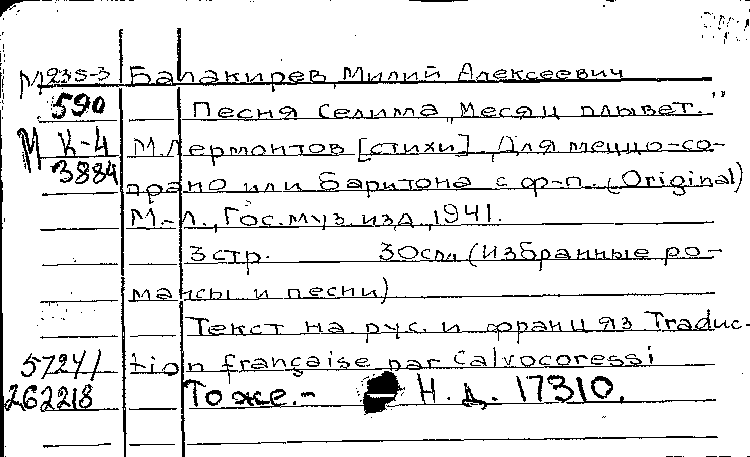 М235-3 Балакирев, Милий Алексеевич
590 Песня Селима „Месяц плывет."
М К-4 М.Лермонтов [стихи]. Для меццо-со-
3884 прано или баритона с ф-п. (Original)
М.-Л., Гос. муз. изд., 1941.
3 стр. 30см (Избранные ро-
мансы и песни)
Текст на рус. и франц яз Traduc-
57241 tion française par Calvocoressi
262218 То же.- Н.д. 17310.